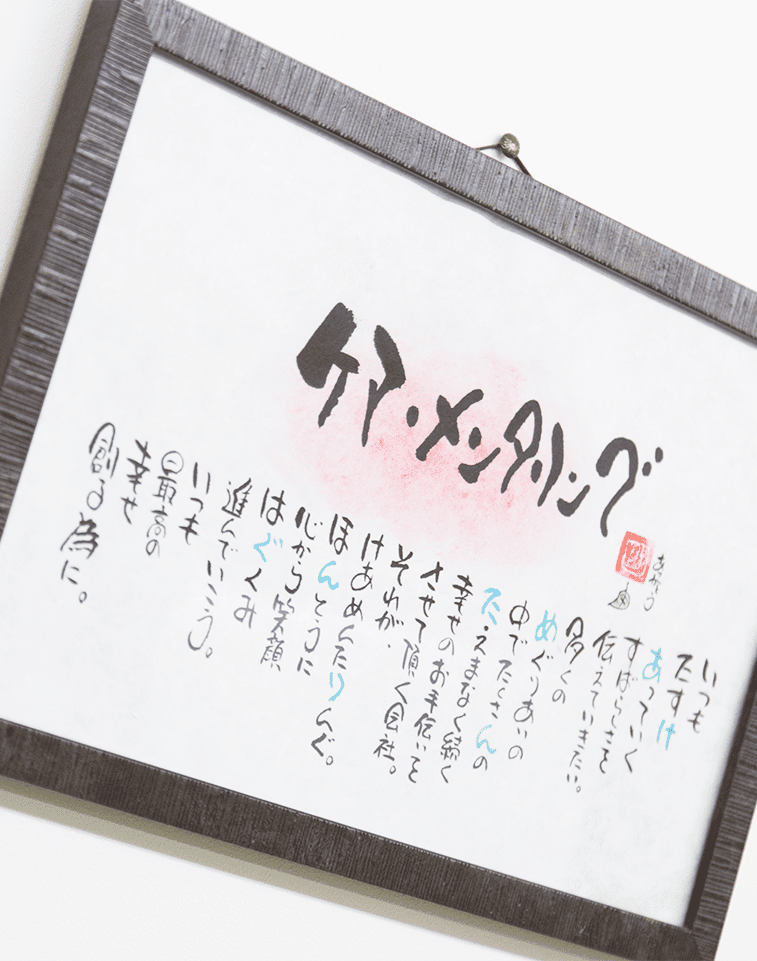 ケア・メンタリング
いつも
たすけ
あっていく
すばらしさを
伝えていきたい。
多くの
めぐりあいの
中でたくさんの
たえまなく続く
幸せのお手伝いを
させて頂く会社。
それが、
けあめんたりんぐ。
ほんとうに
心から笑顔
はぐくみ
進んでいこう。
いつも
最高の
幸せ
創る為に。